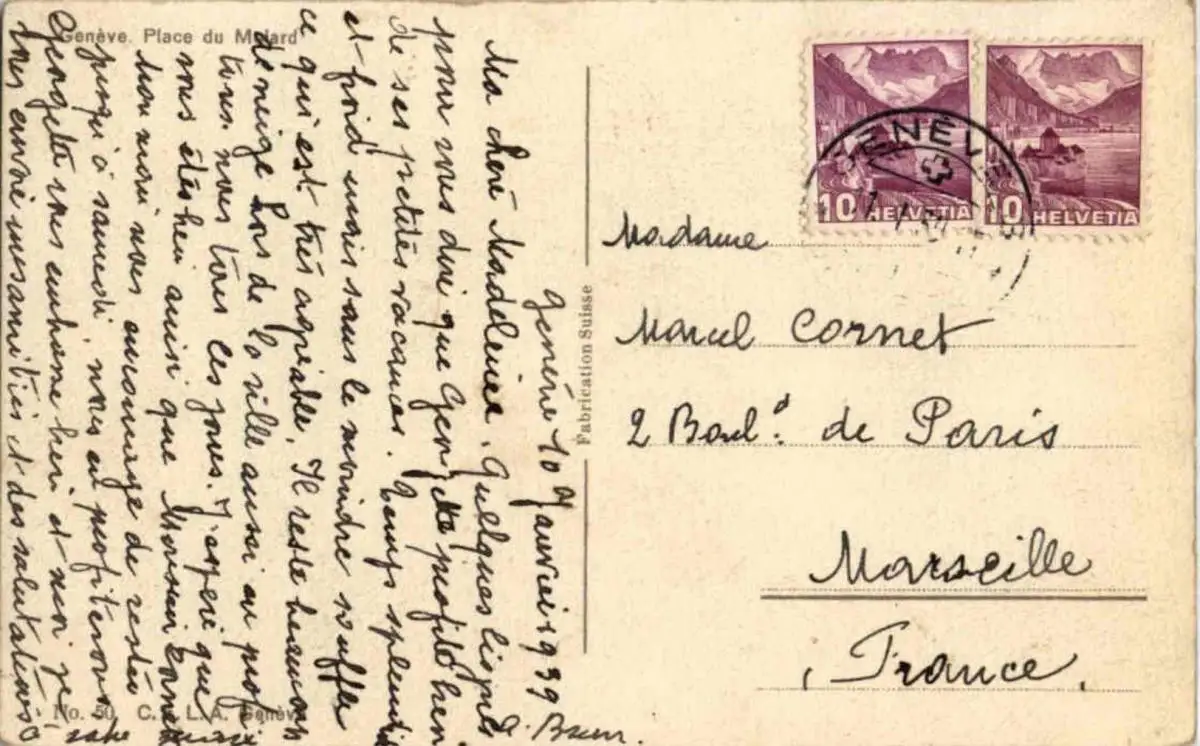 Genève. Place du Molard
Genève 10 Janvier 1939
Ma chère Madeleine. Quelques lignes
pour vous dire que Georgette profite bien
de ses petites vacances. Temps splendide
et froid mais sans le moindre souffle
ce qui est très agréable. Il reste beaucoup
de neige hors de la ville aussi en
tous les jours. J'espère que
vous êtes bien ainsi que Monsieur Cornet
mon mari vous encourage de rester
jusqu'à samedi, nous en profiterons
Georgette vous embrasse bien et moi je
vous envoie mes amitiés et des salutations
à
A. Brun.
No. 50. C. L.A. Genève
Fabrication Suisse
10 HELVETIA
10 HELVETIA
GENÈVE
Madame
Marcel Cornet
2 Boul.d de Paris
Marseille
France.